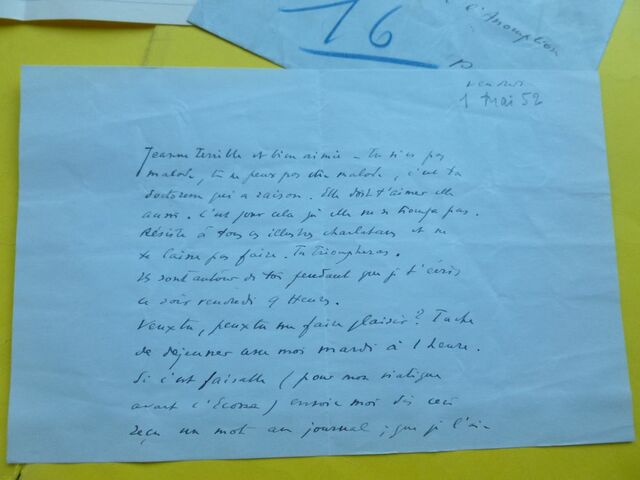 16
l'Assomption
P
vendredi
1 Mai 52
Jeanne terrible et bien aimée – tu n'es pas
malade, tu ne peux pas être malade, c'est ta
doctoresse qui a raison. Elle doit t'aimer elle
aussi. C'est pour cela qu'elle ne se trompe pas.
Résiste à tous ces illustres charlatans et ne
te laisse pas faire. Tu triompheras.
Ils sont autour de toi pendant que je t'écris
ce soir vendredi 9 heures.
Veux tu, peux tu me faire plaisir? Tache
de déjeuner avec moi mardi à 1 heure.
Si c'est faisable (pour mon viatique
avant l'Ecosse) envoie moi dès ceci
reçu un mot au journal ; que je l'aie